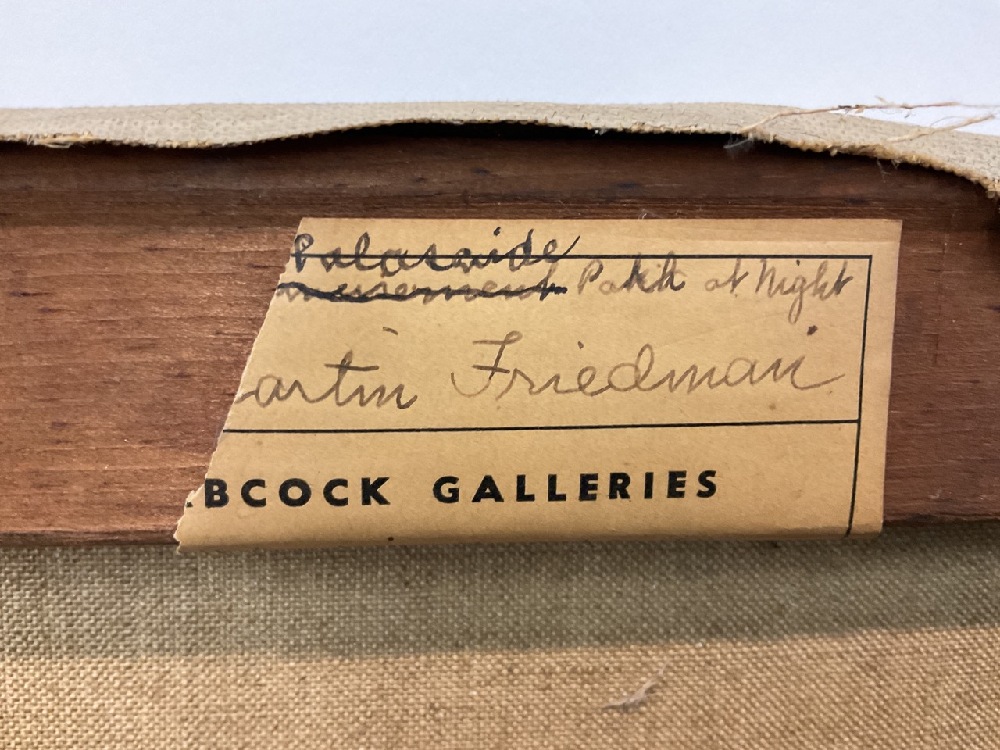 Palasaide
Park at Night
artin Friedman
BCOCK GALLERIES